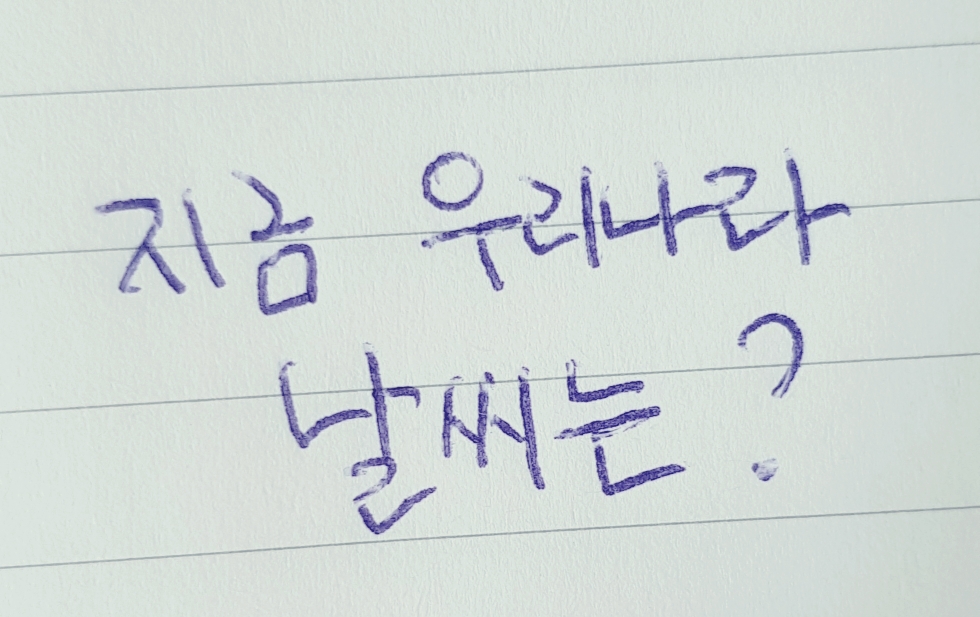 지금 우리나라
날씨는?